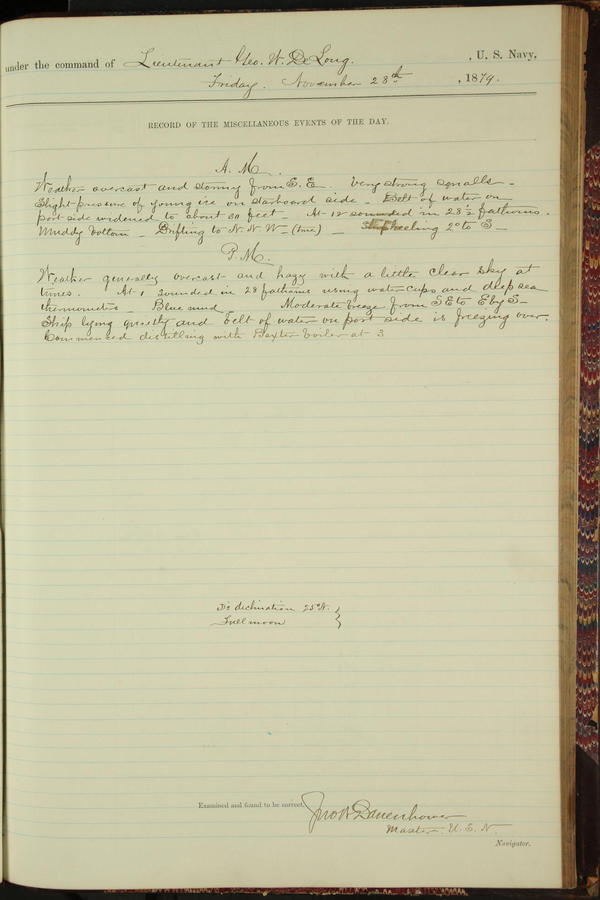 under the command of Lieutenant Geo. W. De Long. , U. S. Navy,
Friday. November 28th , 1879.
RECORD OF THE MISCELLANEOUS EVENTS OF THE DAY.
A. M.
Weather overcast and stormy from S.E. Very strong squalls –
Slight pressure of young ice on starboard side – Belt of water on
port side widened to about 30 feet – At 12 sounded in 28 ½ fathoms.
Muddy bottom – Drifting to N. N. W – (true) – Ship heeling 2° to S –
P. M.
Weather generally overcast and hazy with a little clear sky at
times. At 1 sounded in 28 fathoms using water cups and deep sea
thermometers – Blue mud Moderate breeze from SE to E by S –
Ship lying quietly and belt of water on port side is freezing over.
Commenced distilling with Baxter boiler at 3
D's declination 25° N. }
Full moon
Examined and found to be correct.
Jno W Danenhower
Master – U. S. N.
Navigator.